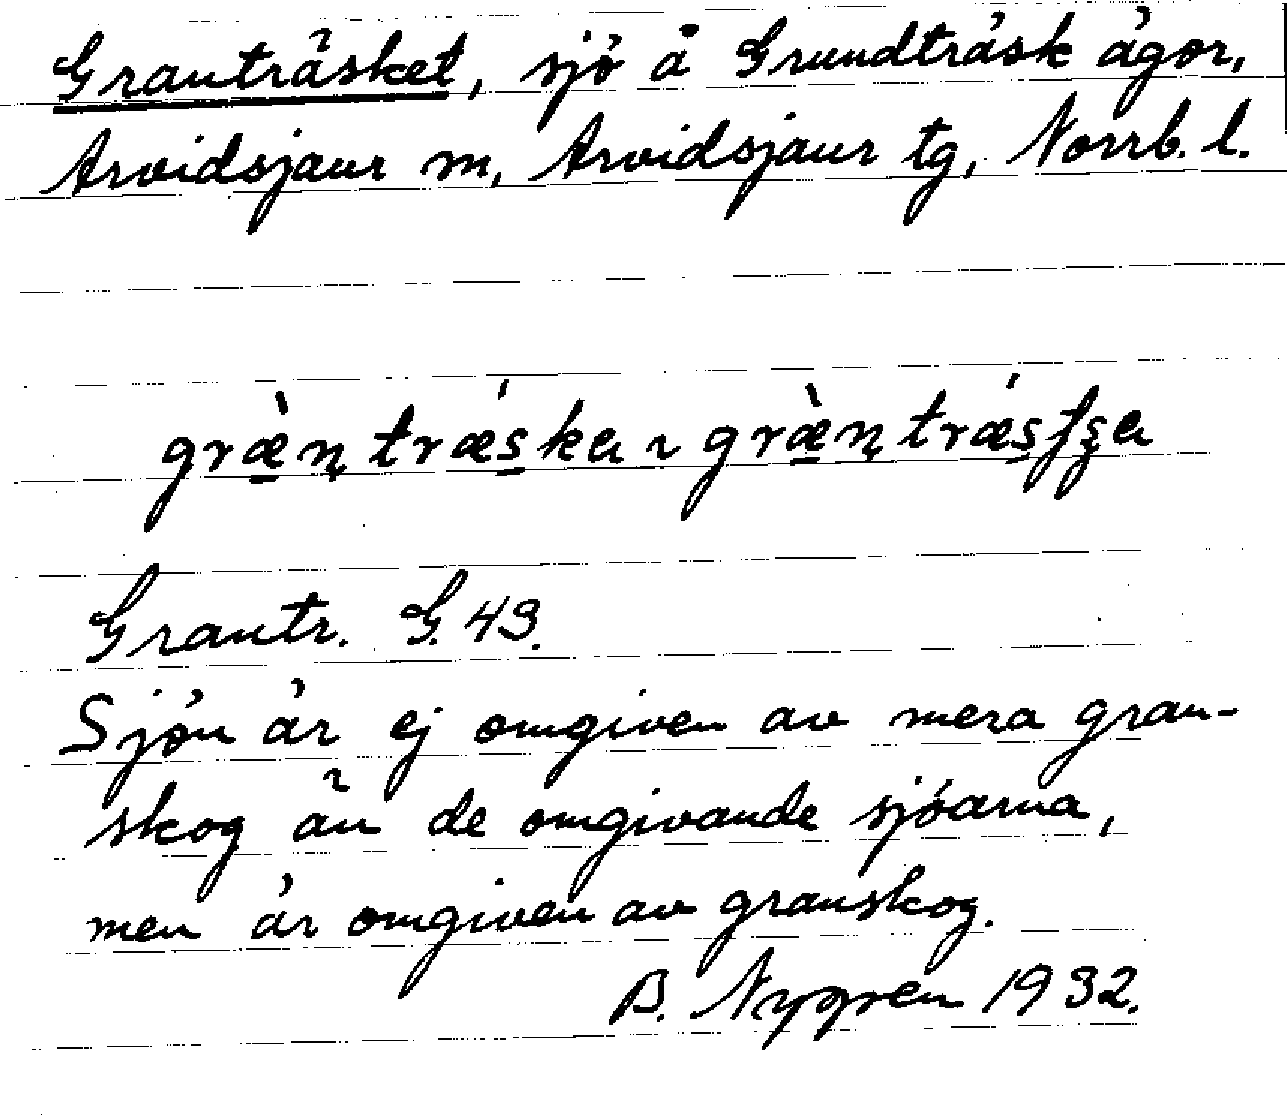 Granträsket, sjö å Grundträsk ägor,
Arvidsjaur sn, Arvidsjaur tg, Norrb. l.
græ̀n̨ trǽs̱ka ~ græ̀n̨ trǽs̱ʃʂa
Grantr. G. 43.
Sjön är ej omgiven av mera gran-
skog än de omgivande sjöarna,
men är omgiven av granskog.
B. Nygren 1932.